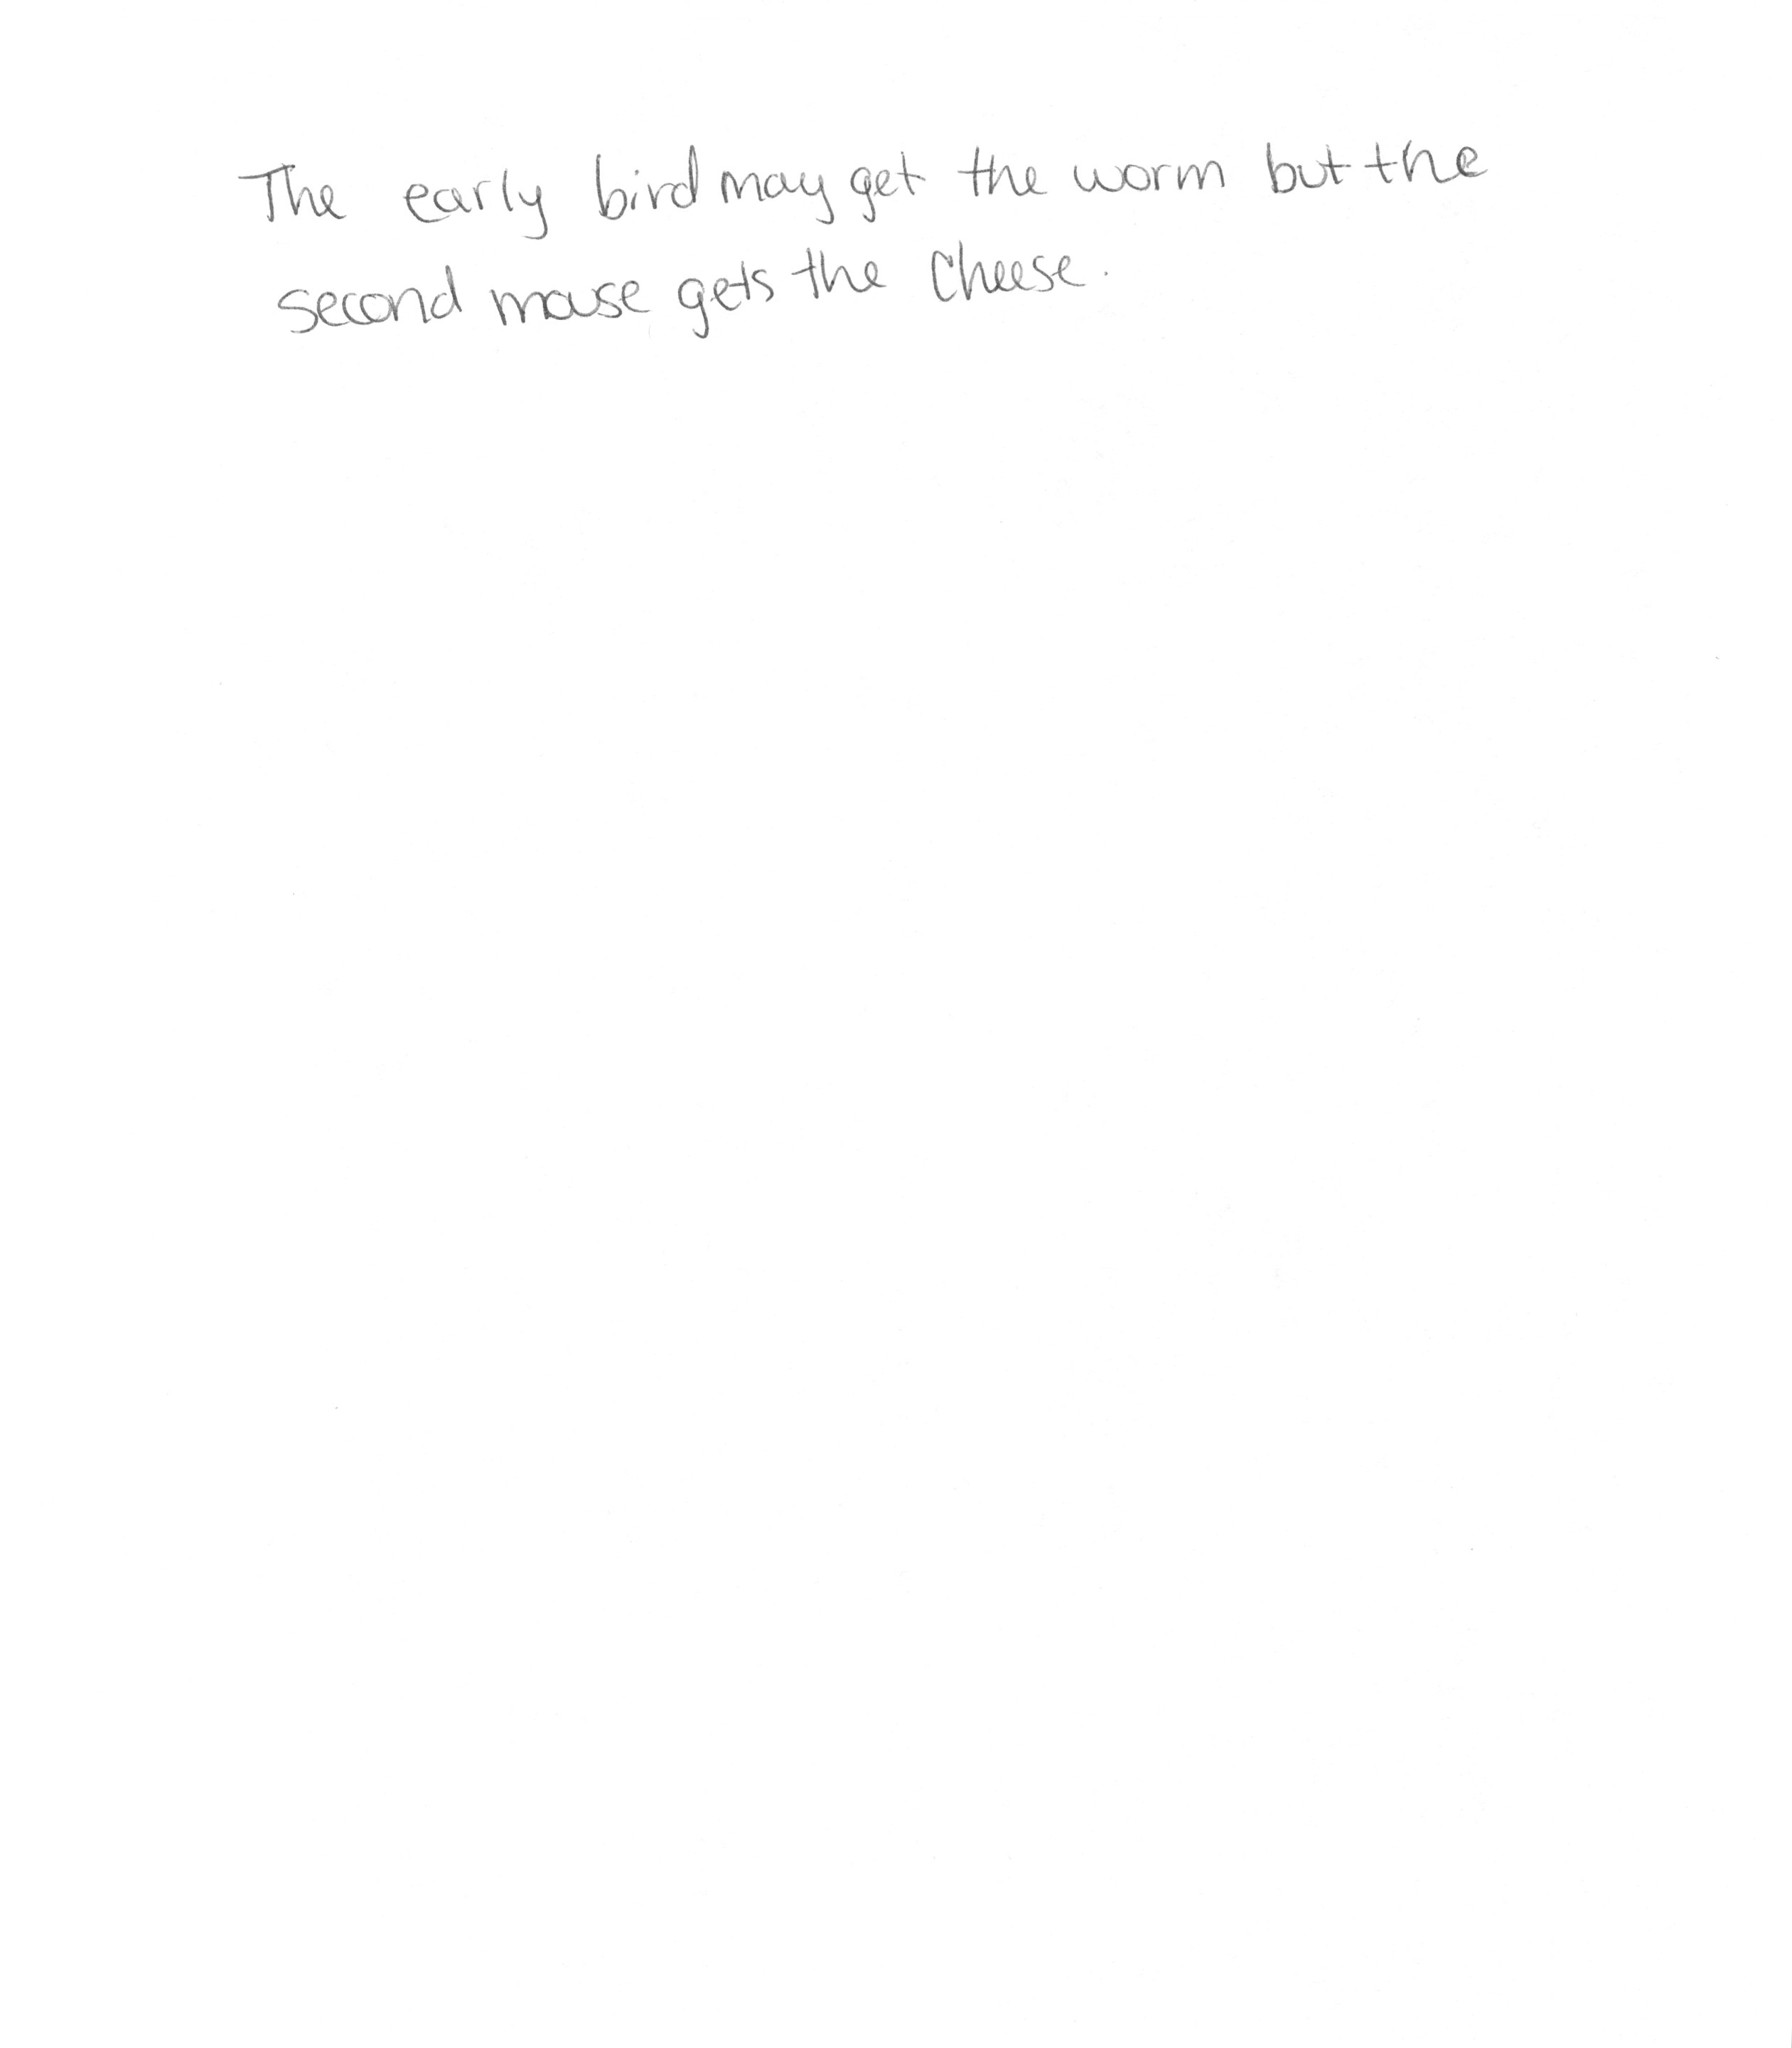 The early bird may get the worm but the
second mouse gets the Cheese.